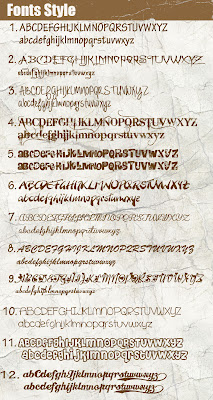 Fonts Style
1. ABCDEFGHIJKLMNOPQRSTUVWXYZ
abcdefghijklmnopqrstuvwxyz
2. ABCDEFGHIJKLMNOPQRSTUVWXYZ
abcdefghijklmnopqrstuvwxyz
3. ABCDEFGHIJKLMNOPQRSTUVWXYZ
abcdefghijklmnopqrstuvwxyz
4. ABCDEFGHIJKLMNOPQRSTUVWXYZ
abcdefghijklmnopqrstuvwxyz
5. ABCDEFGHIJKLMNOPQRSTUVWXYZ
ABCDEFGHIJKLMNOPQRSTUVWXYZ
6. ABCDEFGHIJKLMNOPQRSTUVWXYZ
abcdefghijklmnopqrstuvwxyz
7. ABCDEFGHIJKLMNOPQRSTUVWXYZ
abcdefghijklmnopqrstuvwxyz
8. ABCDEFGHIJKLMNOPQRSTUVWXYZ
abcdefghijklmnopqrstuvwxyz
9. ABCDEFGHIJKLMNOPQRSTUVWXYZ
abcdefghijklmnopqrstuvwxyz
10. ABCDEFGHIJKLMNOPQRSTUVWXYZ
abcdefghijklmnopqrstuvwxyz
11. ABCDEFGHIJKLMNOPQRSTUVWXYZ
abcdefghijklmnopqrstuvwxyz
12. abCdefGhijklmnopqrstuvwxyz
abcdefghijklmnopqrstuvwxyz